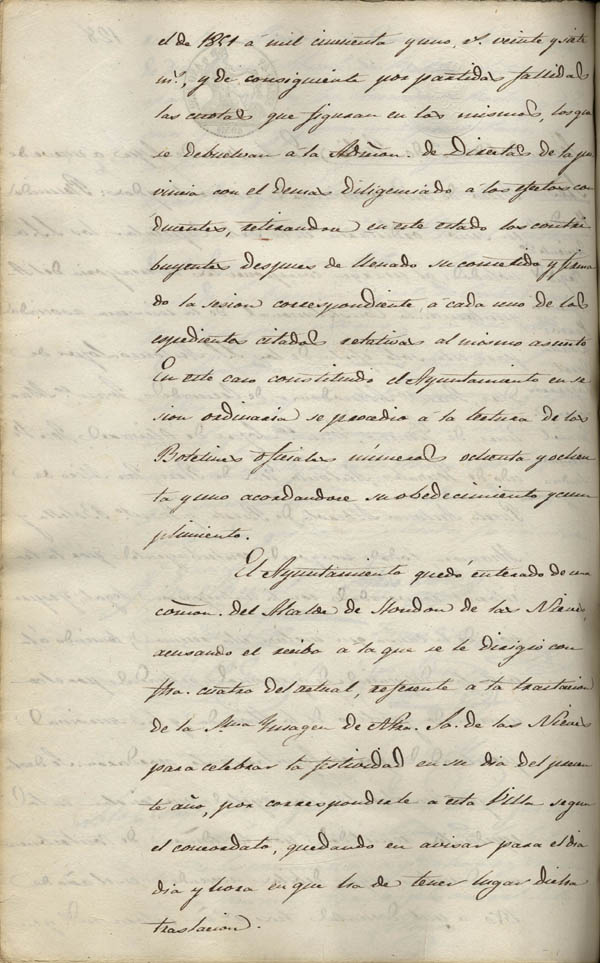 el de 1851 á mil cincuenta y uno, rs. veinte y siete
ms., y de consiguiente por partidas fallidas
las cuotas que figuran en las mismas, las que
se debuelvan á la Admon. de Directas de la pro
vincia con el demas diligenciado á los efectos con
ducentes, retirandose en este estado los contri
buyentes despues de llenado su cometido y firma
do la sesion correspondiente á cada uno de los
espedientes citados relativos al mismo asunto
En este caso constituido el Ayuntamiento en se
sion ordinaria se procedio á la lectura de los
Boletines oficiales números ochenta y ochen
ta y uno acordandose su obedecimiento y cum
plimiento.
El Ayuntamiento quedó enterado de una
comon. del Alcalde de Hondon de las Nieves,
acusando el recibo á la que se le dirigio con
fha. cuatro del actual, referente á la traslacion
de la Sma. Ymagen de Ntra. Sa. de las Nieves
para celebrar la festividad en su dia del presen
te año, por corresponderle á esta Villa segun
el concordato, quedando en avisar para el dia
dia y hora en que ha de tener lugar dicha
traslacion.